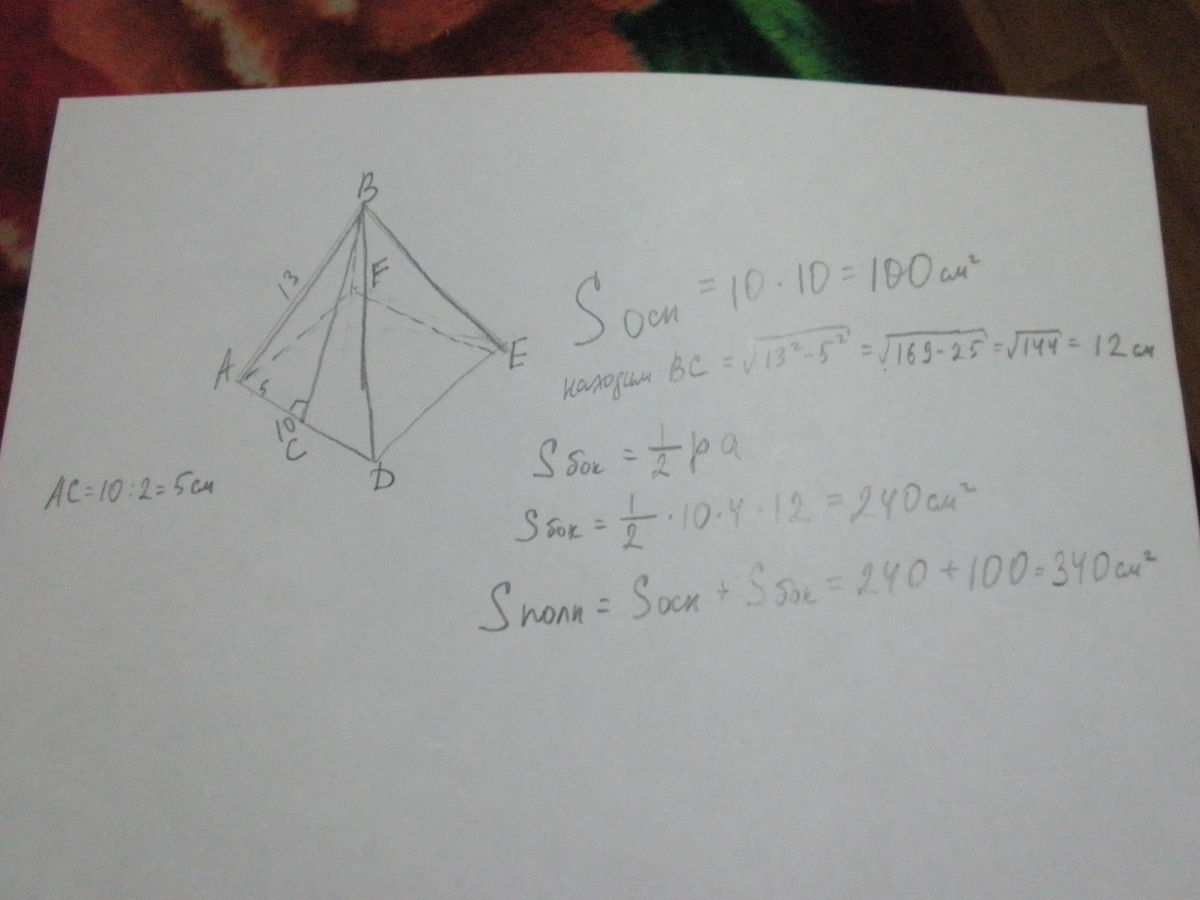 B
13
F
A
5
E
10
C
D
AC=10:2=5см
Sосн = 10·10=100см²
находим BC = √13²-5² = √169-25 = √144 = 12см
Sбок = 1/2 pa
Sбок = 1/2 ·10·4·12 = 240см²
Sполн = Sосн + Sбок = 240+100=340см²